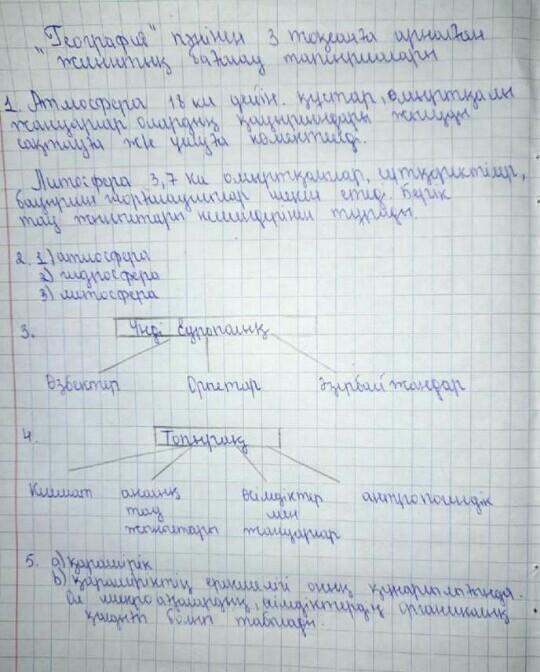 "География" пәнінен 3 тоқсанға арналған
жиынтық бағалау тапсырмалары
1. Атмосфера 18 км дейін. құстар, омыртқалы
жануарлар олардың қауырсындары жылуды
сақтауға және ұшуға көмектеседі.
Литосфера 3,7 км омыртқалылар, сүтқоректілер,
бауырымен жорғалаушылар мекен етеді. Биік
тау жыныстары тұрады.
2. 1) атмосфера
2) гидросфера
3) литосфера
3. Үнді Еуропалық
Өзбектер Орыстар Әзірбайжандар
4. Топырақ
Климат аналық өсімдіктер антропогендік
тау мен
жыныстары жануарлар
5. a) қарашірік
b) қарашіріктің ерекшелігі оның құнарлылығында.
Ол микроағзалардың, өсімдіктердің органикалық
қалдығы болып табылады.